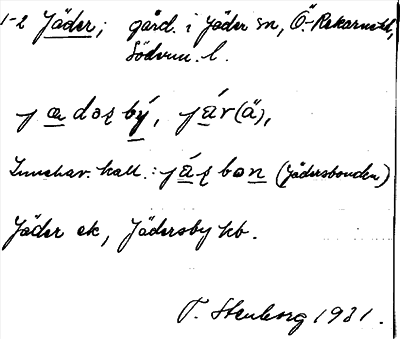 1-2 Jäder; gård. i Jäder sn, Ö.-Rekarne hd,
Söderm. l.
jædəʂbý, jǽr(ä),
Innehav. kall.: jǽʂbon (Jädersbonden)
Jäder ek, Jädersby hb.
T. Stenborg 1931.